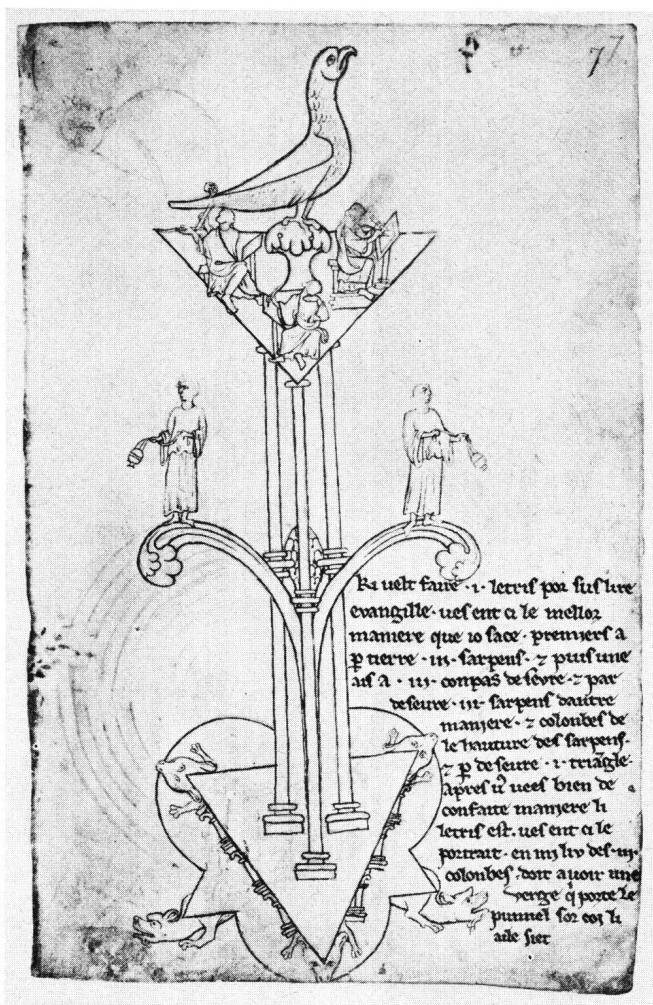 77
Ki velt faire .i. letris por sus lire
evangille . ves ent ci le mellor
maniere que io face . premiers a
p tierre . iii . sarpens . ⁊ puis une
ais a . iii . conpas deseure . ⁊ par
deseure . iii . sarpens dautre
maniere . ⁊ colonbes de
le hauture des sarpens .
⁊ p deseure . i . triangle .
Apres v vees bien de
confaite maniere li
letris est . ves ent ci le
portrait . en mi liu des . iii .
colonbes . doit avoir une
verge q porte le
pumel sor coi li
aile siet